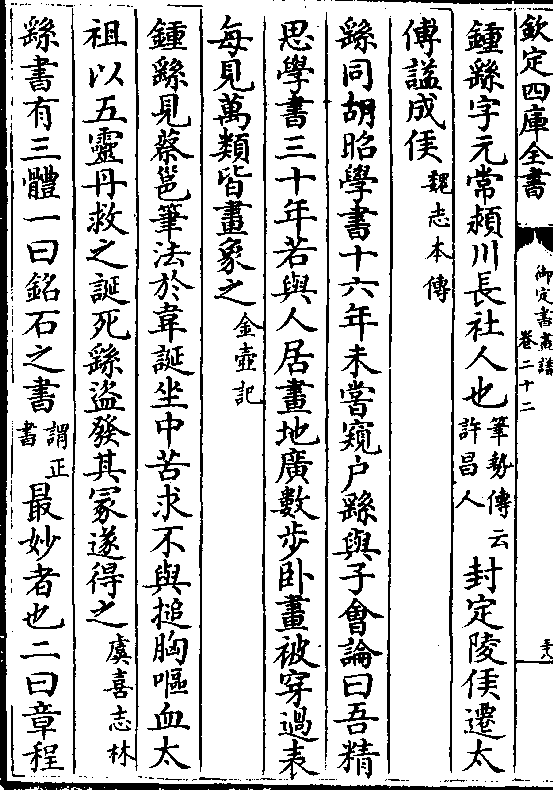 欽定四庫全書
御定書畫譜
卷二十二
鍾繇字元常潁川長社人也筆勢傳云許昌人封定陵侯遷太
傅諡成侯魏志本傳
繇同胡昭學書十六年未嘗窺户繇與子會論曰吾精
思學書三十年若與人居畫地廣數步卧畫被穿過表
每見萬類皆畫象之金壺記
鍾繇見蔡邕筆法於韋誕坐中苦求不與搥胸嘔血太
祖以五靈丹救之誕死繇盜發其冡遂得之虞喜志林
繇書有三體一曰銘石之書謂正書最妙者也二曰章程